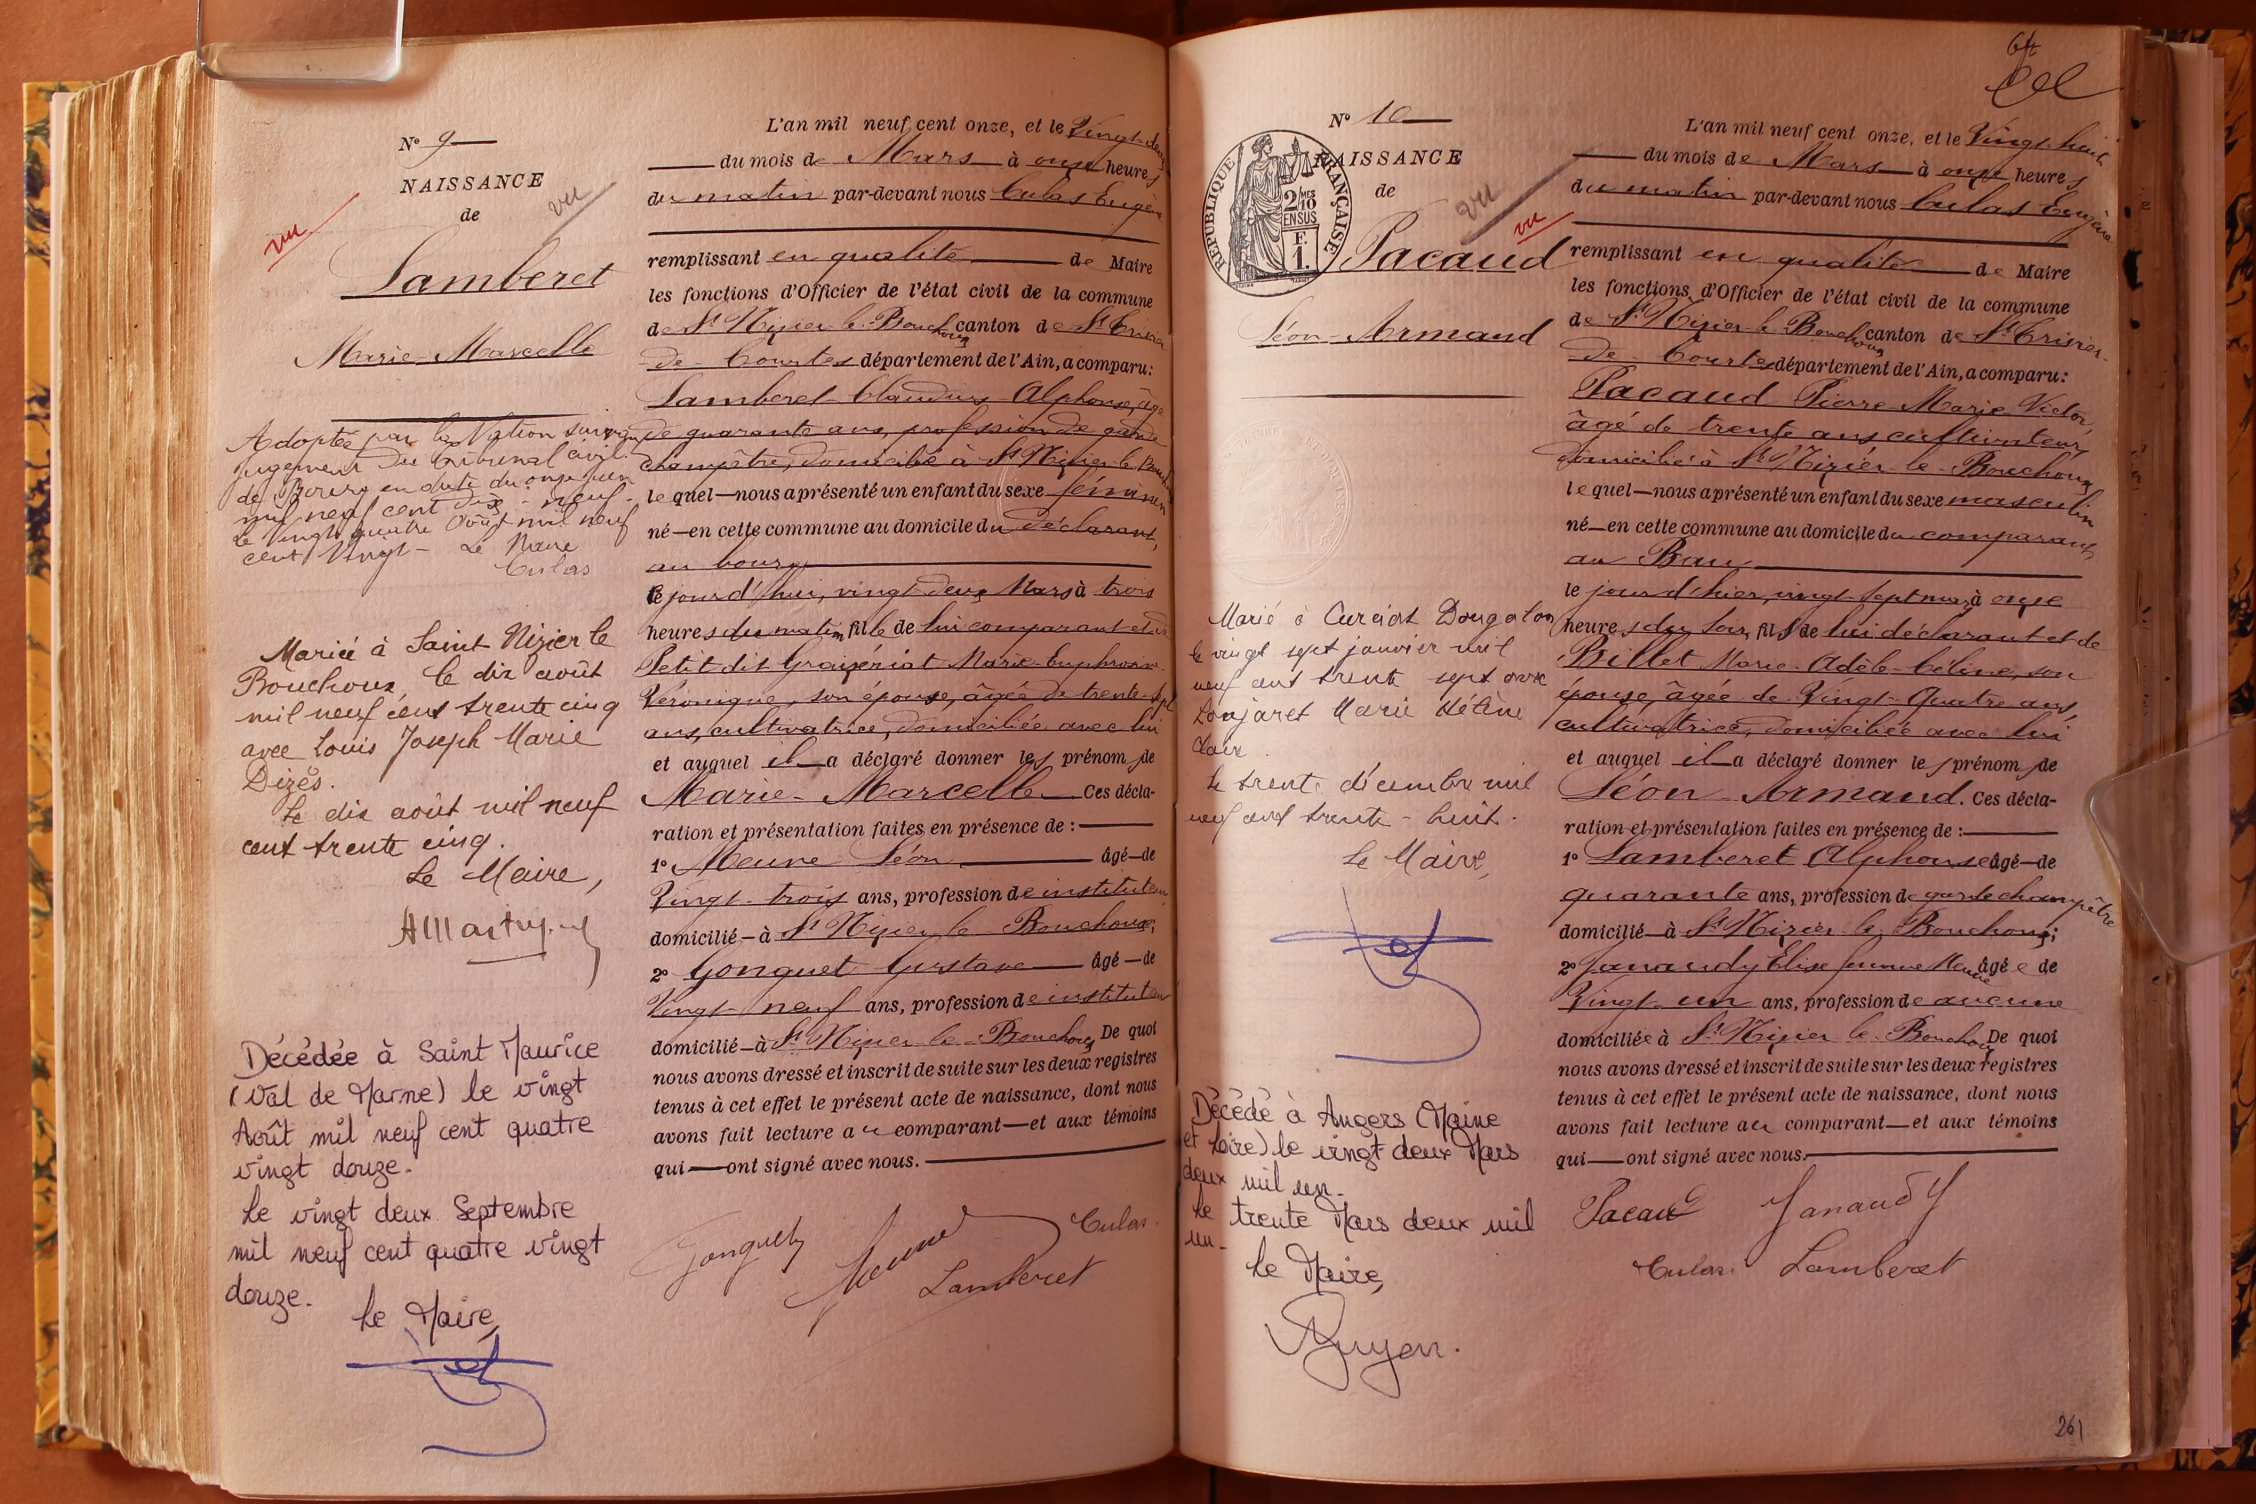 N° 9
NAISSANCE
de
vu
vu
Lamberet
Marie-Marcelle
Adoptée par la Nation suivant
jugement du tribunal civil
de Bourg en date du onze juin
mil neuf cent dix-neuf.
Le vingt quatre Août mil neuf
cent vingt - Le Maire
Culas
Mariée à Saint Nizier le
Bouchoux, le dix août
mil neuf cent trente cinq
avec Louis Joseph Marie
Dizès.
Le dix août mil neuf
cent trente cinq.
Le Maire,
Décédée à Saint Maurice
(Val de Marne) le vingt
Août mil neuf cent quatre
vingt douze.
Le vingt deux Septembre
mil neuf cent quatre vingt
douze.
Le Maire,
L'an mil neuf cent onze, et le Vingt-deux
du mois de Mars à onze heures
du matin par-devant nous Culas Eugène
remplissant en qualité de Maire
les fonctions d'Officier de l'état civil de la commune
de St Nizier-le-Bouchoux canton de St Trivier
de-Courtes département de l'Ain, a comparu:
Lamberet Claudius Alphonse, âgé
de quarante ans, profession de garde
champêtre, domicilié à St Nizier-le-Bouchoux
lequel—nous a présenté un enfant du sexe féminin
né—en cette commune au domicile du déclarant,
au bourg
le jour d'hui, vingt-deux Mars à trois
heures du matin fille de lui comparant et de
Petit dit Graizériat Marie-Euphroisine-
Véronique, son épouse, âgée de trente-sept
ans, cultivatrice, domiciliée avec lui
et auquel il a déclaré donner les prénom de
Marie-Marcelle Ces décla-
ration et présentation faites en présence de :
1° Meune Léon âgé—de
Vingt-trois ans, profession de instituteur
domicilié—à St Nizier le Bouchoux;
2° Gonguet Gustave âgé—de
Vingt-neuf ans, profession de instituteur
domicilié—à St Nizier-le-Bouchoux De quoi
nous avons dressé et inscrit de suite sur les deux registres
tenus à cet effet le présent acte de naissance, dont nous
avons fait lecture au comparant—et aux témoins
qui—ont signé avec nous.
Gonguet Meune Culas.
Lamberet
N° 10
NAISSANCE
de
RÉPUBLIQUE FRANÇAISE
2/10
EN SUS
F.
1.
vu
vu
Pacaud
Léon-Armand
Marié à Curciat Dongalon
le vingt sept janvier mil
neuf cent trente sept avec
Loujaret Marie Hélène
Clair.
Le trente décembre mil
neuf cent trente-huit.
Le Maire,
Décédé à Angers (Maine
et Loire) le vingt deux Mars
deux mil un-
Le trente Mars deux mil
un-
Le Maire,
Guyen.
64
L'an mil neuf cent onze, et le Vingt-huit
du mois de Mars à onze heures
du matin par-devant nous Culas Eugène
remplissant en qualité de Maire
les fonctions d'Officier de l'état civil de la commune
de St Nizier-le-Bouchoux canton de St Trivier-
de-Courtes département de l'Ain, a comparu:
Pacaud Pierre Marie Victor,
âgé de trente ans cultivateur,
domicilié à St Nizier-le-Bouchoux
lequel—nous a présenté un enfant du sexe masculin
né—en cette commune au domicile du comparant
au Bau
le jour d'hier, vingt-sept mars à onze
heures du soir, fils de lui déclarant et de
Billet Marie-Adèle-Céline, son
épouse, âgée de Vingt-Quatre ans,
cultivatrice, domiciliée avec lui
et auquel il a déclaré donner les prénom de
Léon-Armand. Ces décla-
ration et présentation faites en présence de :
1° Lamberet Alphonse âgé—de
quarante ans, profession de garde champêtre
domicilié—à St Nizier-le-Bouchoux;
2° Janaudy Elise femme Meune âgée de
Vingt-un ans, profession de aucune
domiciliée à St Nizier le Bouchoux De quoi
nous avons dressé et inscrit de suite sur les deux registres
tenus à cet effet le présent acte de naissance, dont nous
avons fait lecture au comparant—et aux témoins
qui—ont signé avec nous.
Pacaud Janaudy
Culas. Lamberet
261